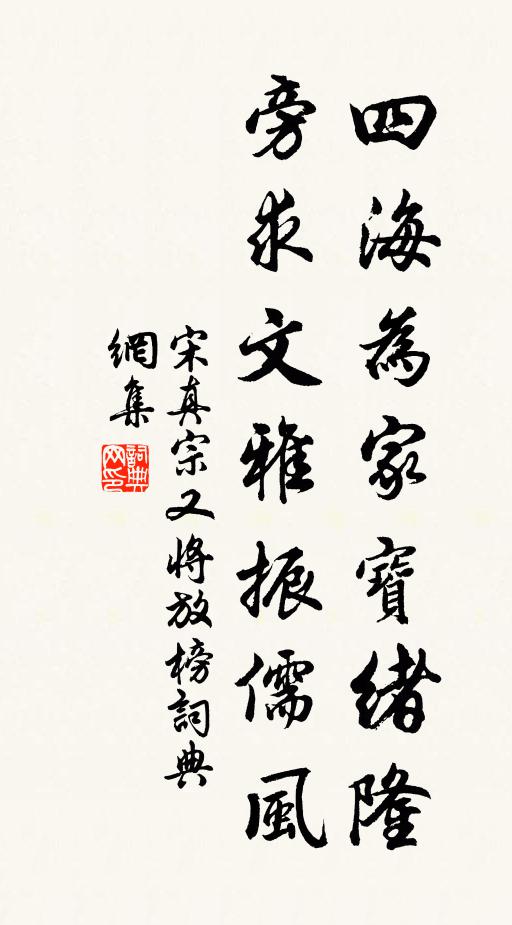 四海為家寶緒隆
旁求文雅振儒風
宋真宗又將放榜詞典
網集
詞典
网印